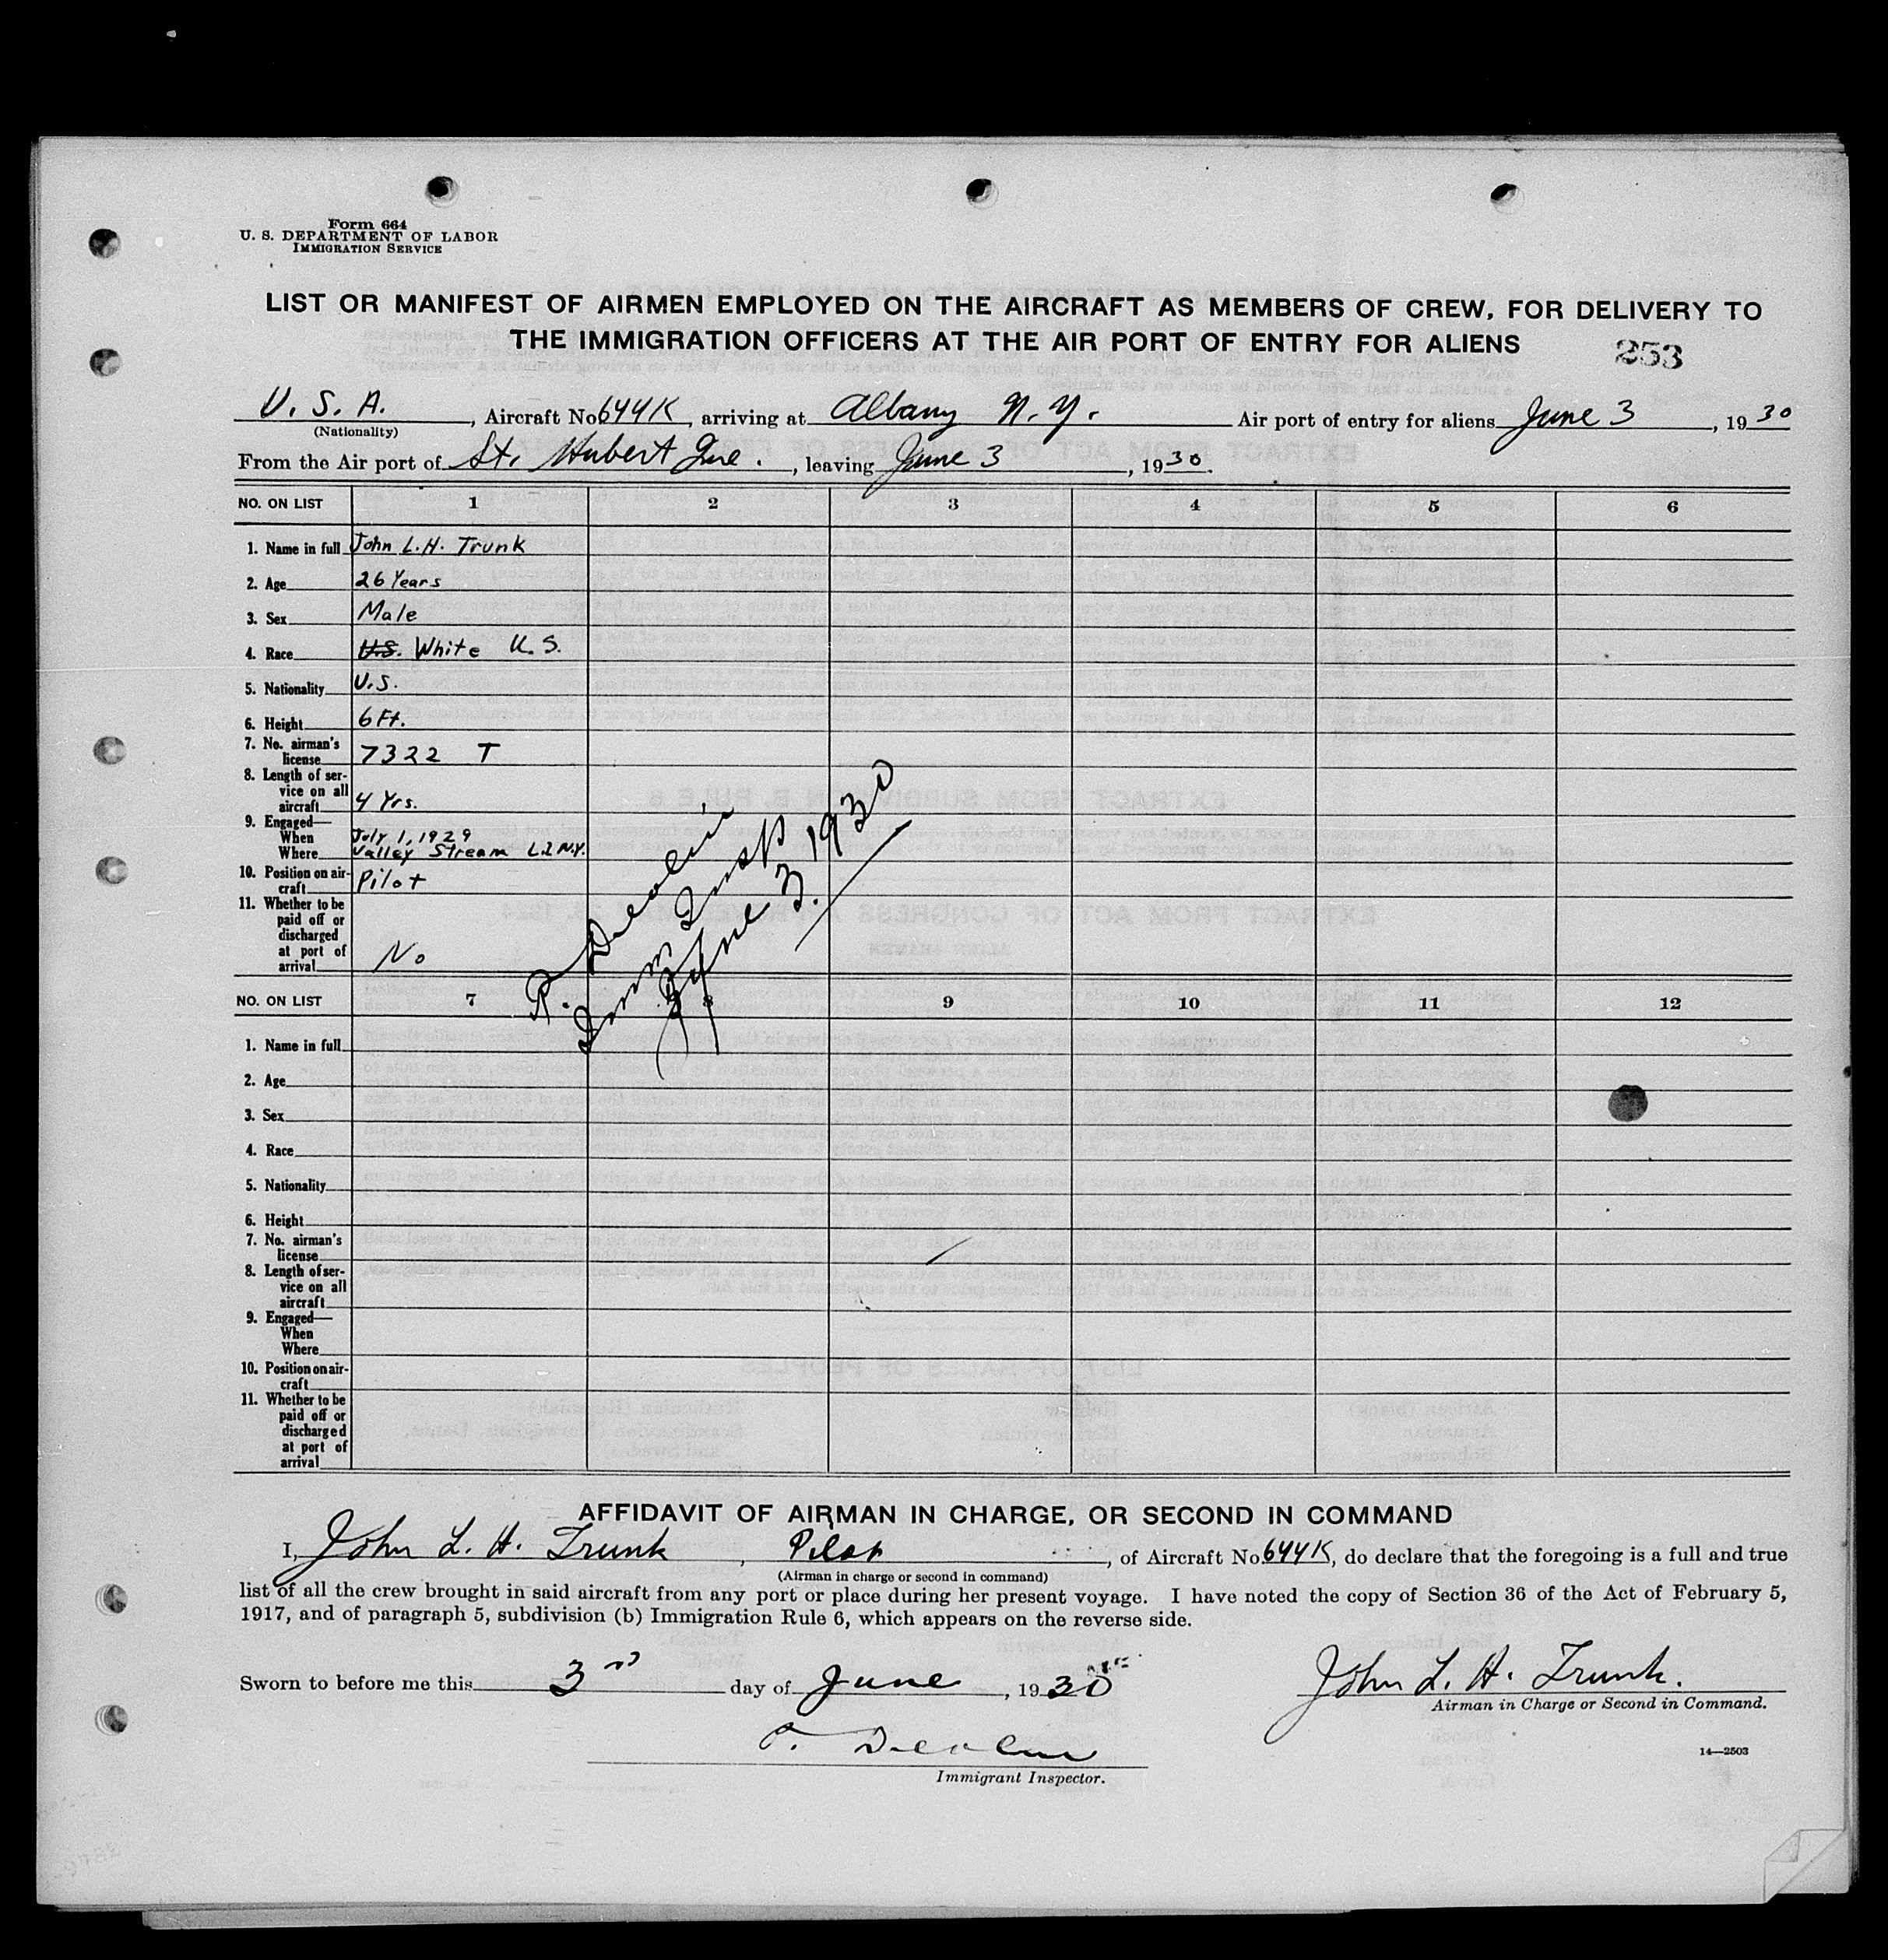 Form 664
U. S. DEPARTMENT OF LABOR
IMMIGRATION SERVICE
LIST OR MANIFEST OF AIRMEN EMPLOYED ON THE AIRCRAFT AS MEMBERS OF CREW, FOR DELIVERY TO
THE IMMIGRATION OFFICERS AT THE AIR PORT OF ENTRY FOR ALIENS
253
U. S. A., Aircraft No. 644K, arriving at Albany N. Y. Air port of entry for aliens June 3, 1930
(Nationality)
From the Air port of St. Hubert Que., leaving June 3, 1930.
NO. ON LIST 1 2 3 4 5 6
1. Name in full John L.H. Trunk
2. Age 26 Years
3. Sex Male
4. Race U.S. White U.S.
5. Nationality U.S.
6. Height 6 Ft.
7. No. airman's
license 7322 T
8. Length of ser-
vice on all
aircraft 4 Yrs.
9. Engaged—
When July 1, 1929
Where Valley Stream L.I N.Y.
10. Position on air-
craft Pilot
11. Whether to be
paid off or
discharged
at port of
arrival No
Imm Insp
June 3. 1930
NO. ON LIST 7 8 9 10 11 12
1. Name in full
2. Age
3. Sex
4. Race
5. Nationality
6. Height
7. No. airman's
license
8. Length of ser-
vice on all
aircraft
9. Engaged—
When
Where
10. Position on air-
craft
11. Whether to be
paid off or
discharged
at port of
arrival
AFFIDAVIT OF AIRMAN IN CHARGE, OR SECOND IN COMMAND
I, John L. H. Trunk, Pilot, of Aircraft No. 644K, do declare that the foregoing is a full and true
(Airman in charge or second in command)
list of all the crew brought in said aircraft from any port or place during her present voyage. I have noted the copy of Section 36 of the Act of February 5,
1917, and of paragraph 5, subdivision (b) Immigration Rule 6, which appears on the reverse side.
Sworn to before me this 3rd day of June, 1930
John L. H. Trunk.
Airman in Charge or Second in Command.
Immigrant Inspector.
14—2503